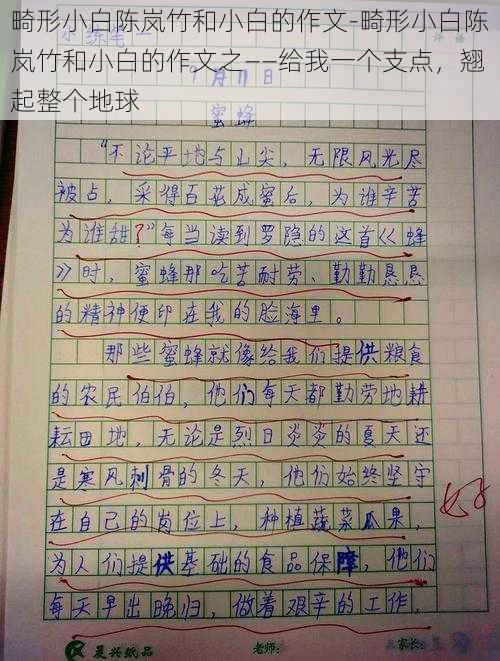 畸形小白陈岚竹和小白的作文-畸形小白陈
岚竹和小白的作文之——给我一个支点，翘
起整个地球
小练笔一
评语
9月11日
蜜蜂
“不论平地与山尖，无限风光尽
被占，采得百花成蜜后，为谁辛苦
为谁甜？”每当读到罗隐的这首《蜂
》时，蜜蜂那吃苦耐劳、勤勤恳恳
的精神便印在我的脸海里。
那些蜜蜂就像给我们提供粮食
的农民伯伯，他们每天都勤劳地耕
耘田地，无论是烈日炎炎的夏天还
是寒风刺骨的冬天，他们始终坚守
在自己的岗位上，种植蔬菜瓜果，
为人们提供基础的食品保障，他们
每天早出晚归，做着艰辛的工作，
好
晨兴纸品
老师：
家长：